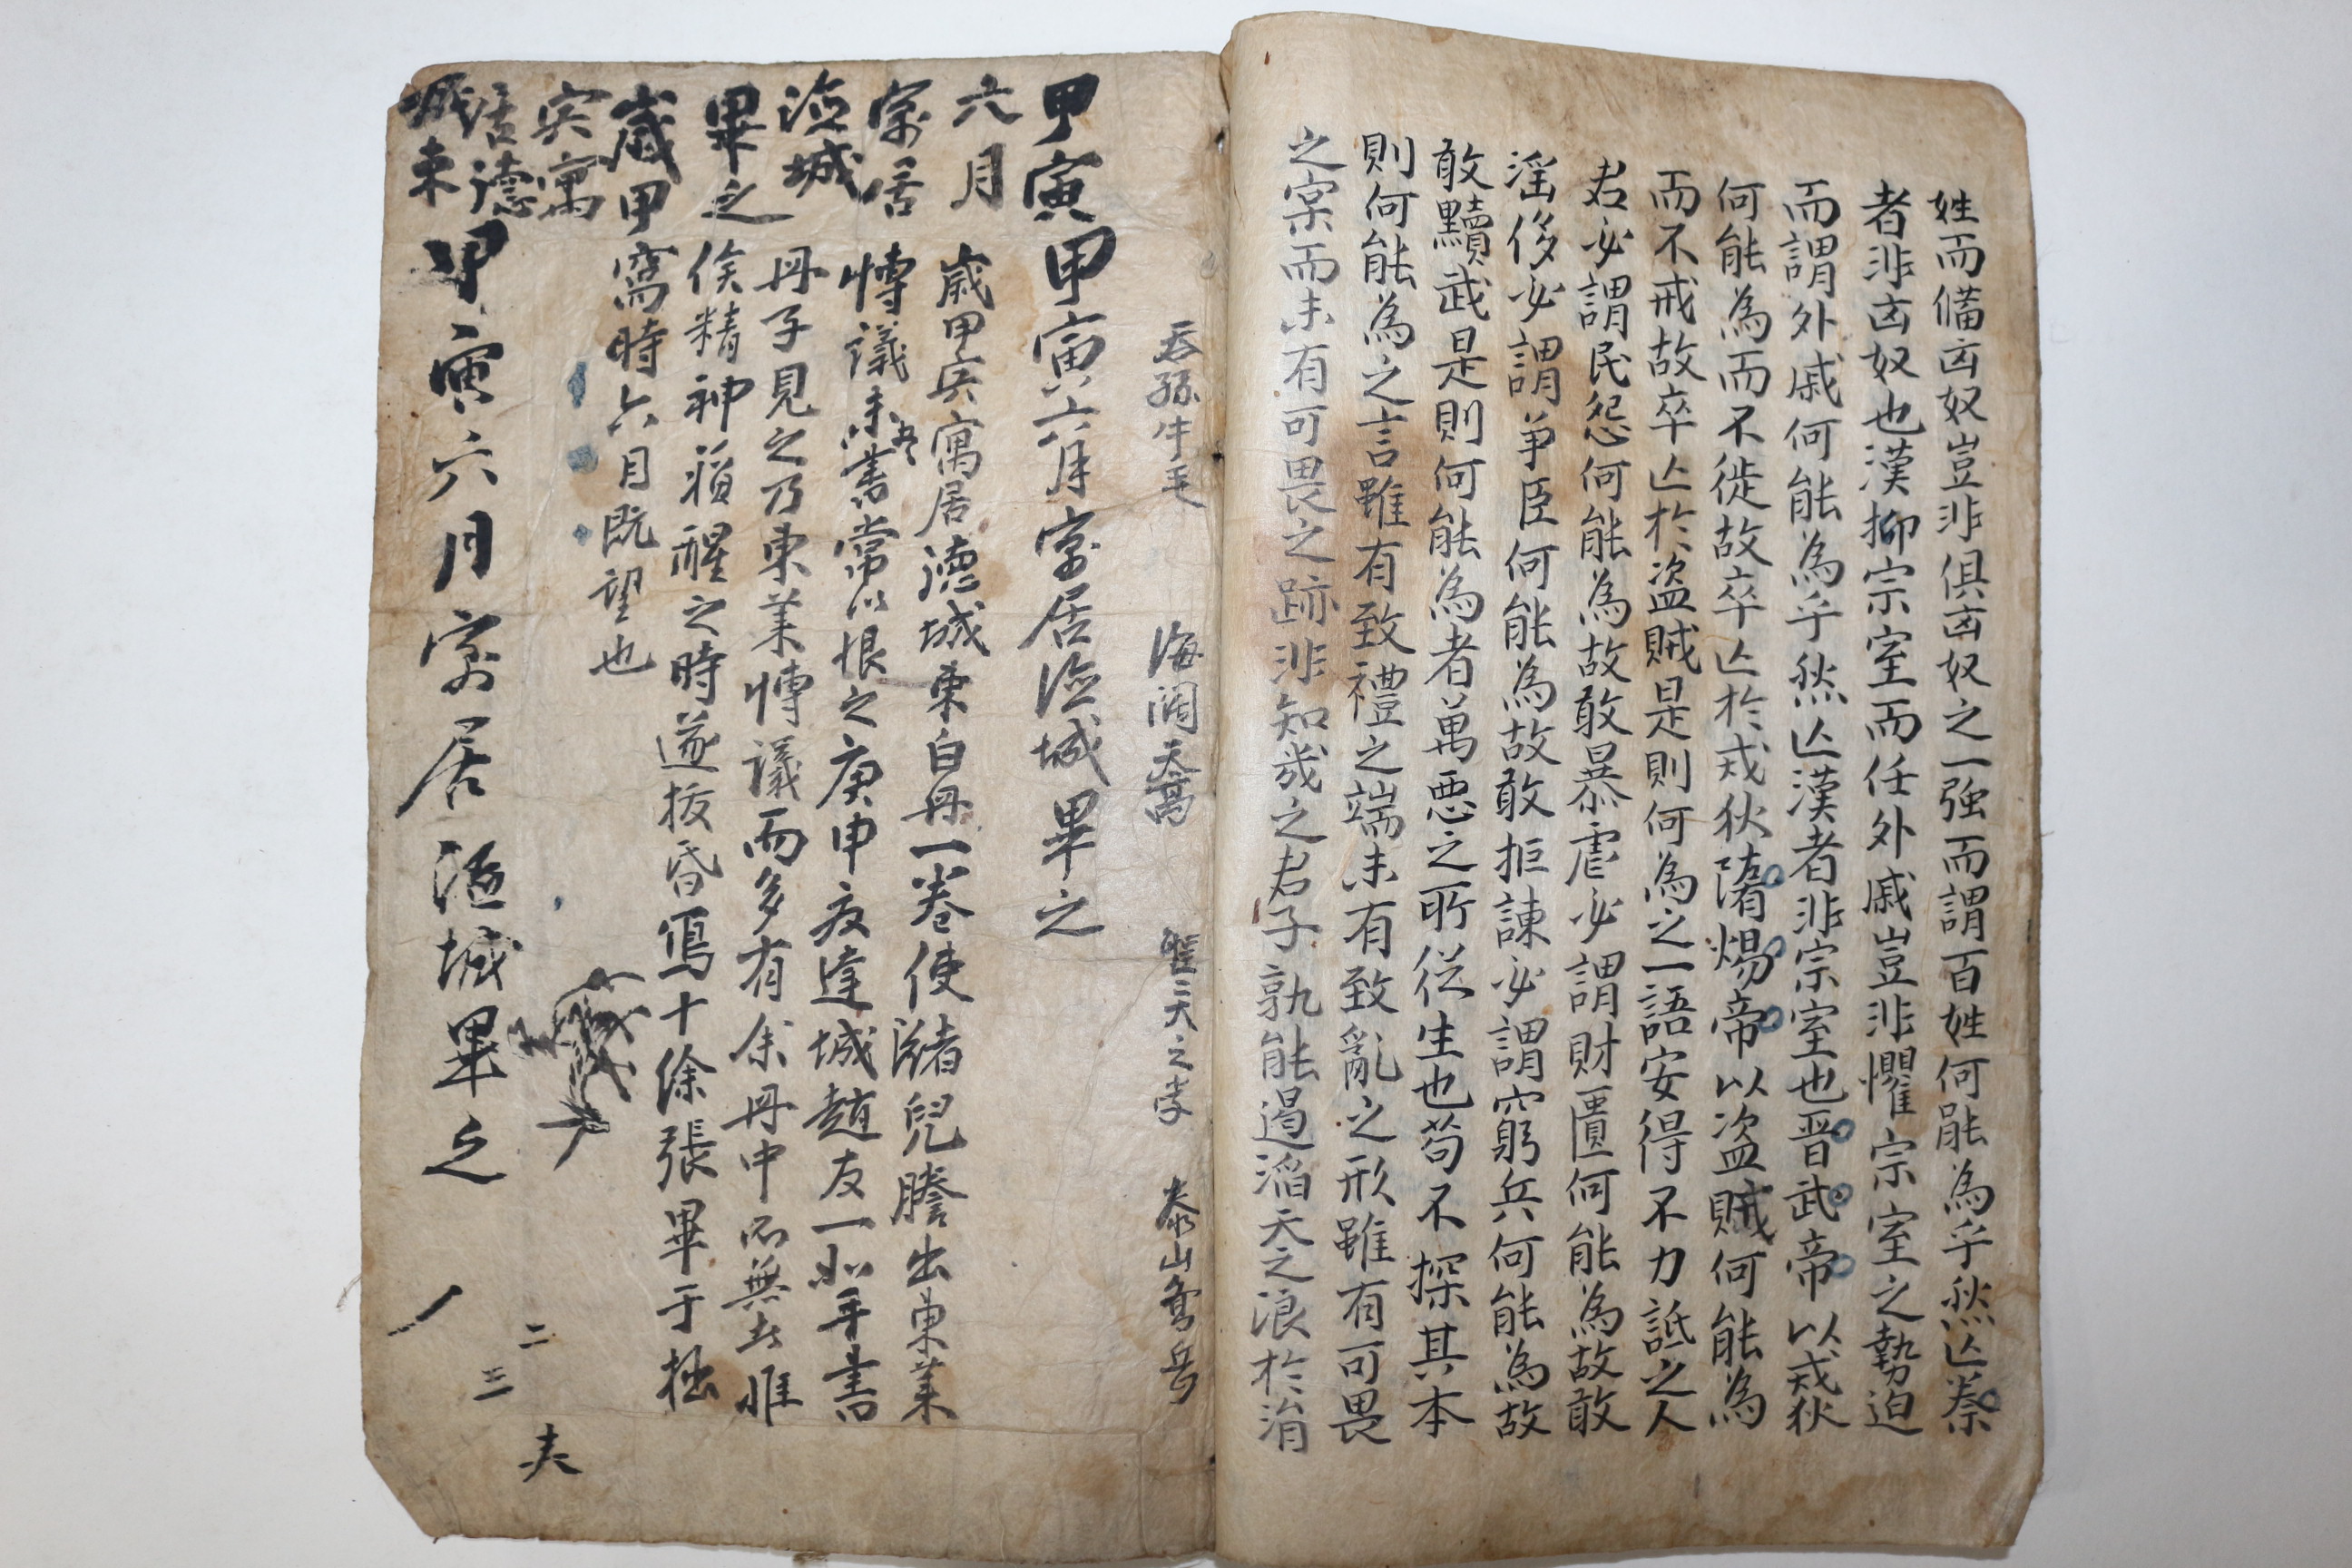 姓而備匈奴豈非俱匈奴之一強而謂百姓何能為乎然亡秦
者非匈奴也漢抑宗室而任外戚豈非懼宗室之勢迫
而謂外戚何能為乎然亡漢者非宗室也晋武帝以戎狄
何能為而不徙故卒亡於戎狄隋煬帝以盗賊何能為
而不戒故卒亡於盗賊是則何為之一語安得不力詆之人
君必謂民怨何能為故敢暴虐必謂財匱何能為故敢
淫侈必謂爭臣何能為故敢拒諫必謂窮兵何能為故
敢黷武是則何能為者萬惡之所從生也苟不探其本
則何能為之言雖有致禮之端未有致亂之形雖有可畏
之寀而未有可畏之跡非知幾之君子孰能遏滔天之浪於涓
海濶天高
泰山喬岳
甲寅甲寅六月寓居德城畢之
六月
歲甲寅寓居德城東白丹一卷使渚兒謄出東萊
寓居
博議未書常以恨之庚申友達城趙友一小手書
德城
丹子見之乃東萊博議而多有余丹中所無者惟
畢之
俟精神稍醒之時遂拔昏寫十餘張畢于拙
歲甲
窩時六月既望也
寅寓
居德
城東
甲寅六月寓居德城畢之
二
三
夫